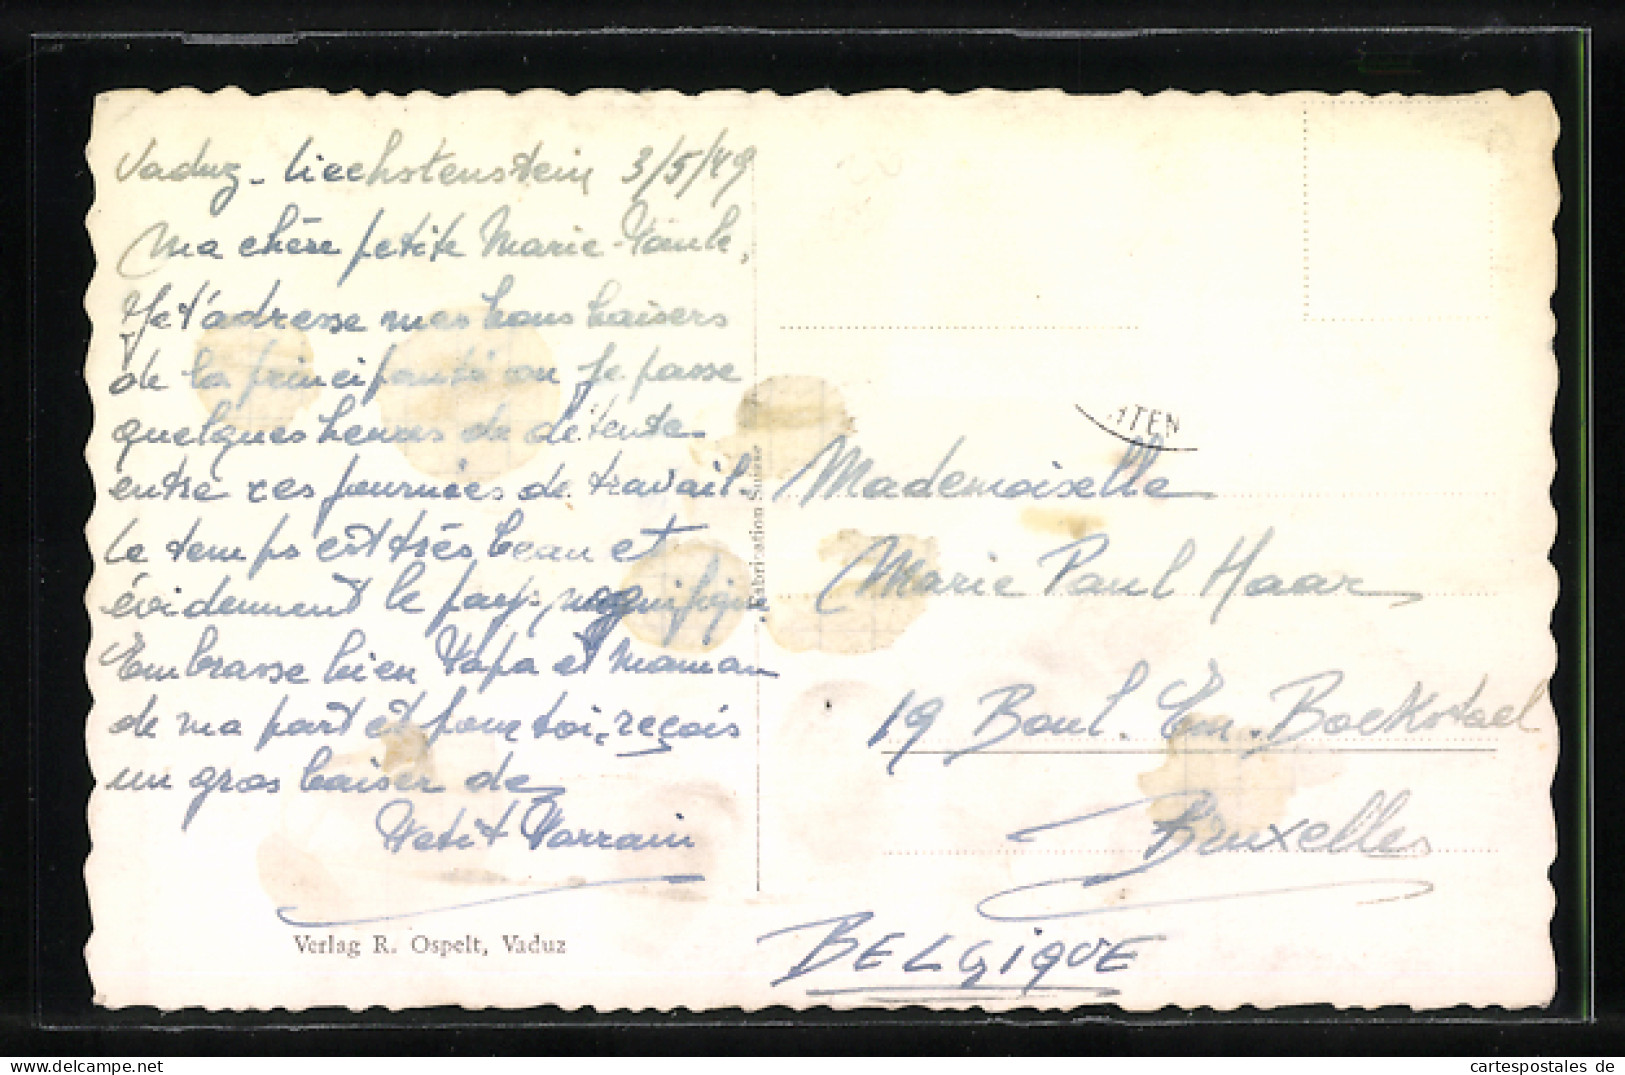 Vaduz - Liechstenstein 3/5/49
Ma chère petite Marie-Paule,
Je t'adresse mes bons baisers
de la principauté ou je passe
quelques heures de détente
entre ces journées de travail.
Le temps est très beau et
évidemment le pays magnifique
Embrasse bien Papa et Maman
de ma part et pour toi, reçois
un gros baiser de
Petit Parrain
Verlag R. Ospelt, Vaduz
Fabrication Suisse
TEN
Mademoiselle
Marie Paul Haar
19 Boul. Em. Bockstael
Bruxelles
BELGIQUE
cartespostales de